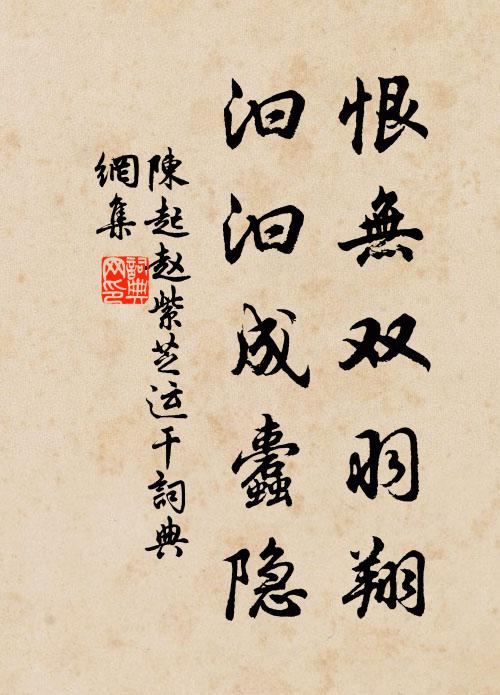 恨無双羽翔
汩汩成蠹隐
陳起赵紫芝运干詞典
網集
詞典网印